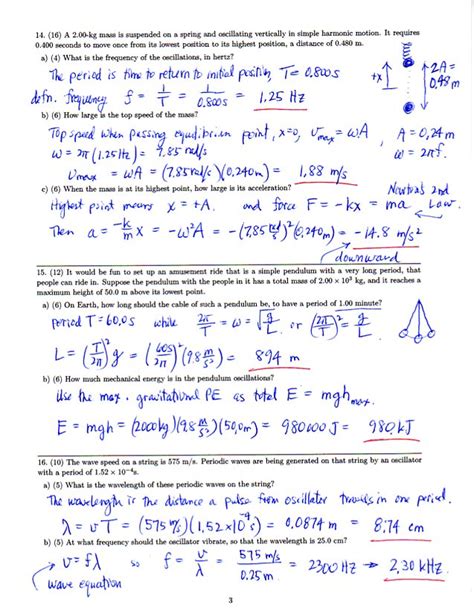 14. (16) A 2.00-kg mass is suspended on a spring and oscillating vertically in simple harmonic motion. It requires
0.400 seconds to move once from its lowest position to its highest position, a distance of 0.480 m.
a) (4) What is the frequency of the oscillations, in hertz?
The period is time to return to initial position, T = 0.800s
defn. frequency f = 1/T = 1/0.800s = 1.25 Hz
+x
2A = 0.48m
b) (6) How large is the top speed of the mass?
Top speed when passing equilibrium point, x=0, v_max = ωA, A = 0.24m
ω = 2π(1.25Hz) = 7.85 rad/s
ω = 2πf.
v_max = ωA = (7.85 rad/s)(0.240m) = 1.88 m/s
c) (6) When the mass is at its highest point, how large is its acceleration?
Newton's 2nd Law.
Highest point means x = +A. and force F = -kx = ma
Then a = -k/m x = -ω²A = -(7.85 rad/s)²(0.240m) = -14.8 m/s²
downward
15. (12) It would be fun to set up an amusement ride that is a simple pendulum with a very long period, that
people can ride in. Suppose the pendulum with the people in it has a total mass of 2.00 × 10³ kg, and it reaches a
maximum height of 50.0 m above its lowest point.
a) (6) On Earth, how long should the cable of such a pendulum be, to have a period of 1.00 minute?
period T = 60.0s while 2π/T = ω = √(g/L) or (2π/T)² = g/L
L = (T/2π)² g = (60s/2π)² (9.8 m/s²) = 894 m
b) (6) How much mechanical energy is in the pendulum oscillations?
Use the max. gravitational PE as total E = mgh_max.
E = mgh = (2000kg)(9.8 m/s²)(50.0m) = 980000 J = 980 kJ
16. (10) The wave speed on a string is 575 m/s. Periodic waves are being generated on that string by an oscillator
with a period of 1.52 × 10⁻⁴s.
a) (5) What is the wavelength of these periodic waves on the string?
The wavelength is the distance a pulse from oscillator travels in one period.
λ = vT = (575 m/s)(1.52×10⁻⁴s) = 0.0874 m = 8.74 cm
b) (5) At what frequency should the oscillator vibrate, so that the wavelength is 25.0 cm?
v = fλ so f = v/λ = 575 m/s / 0.25m = 2300 Hz → 2.30 kHz.
wave equation
3